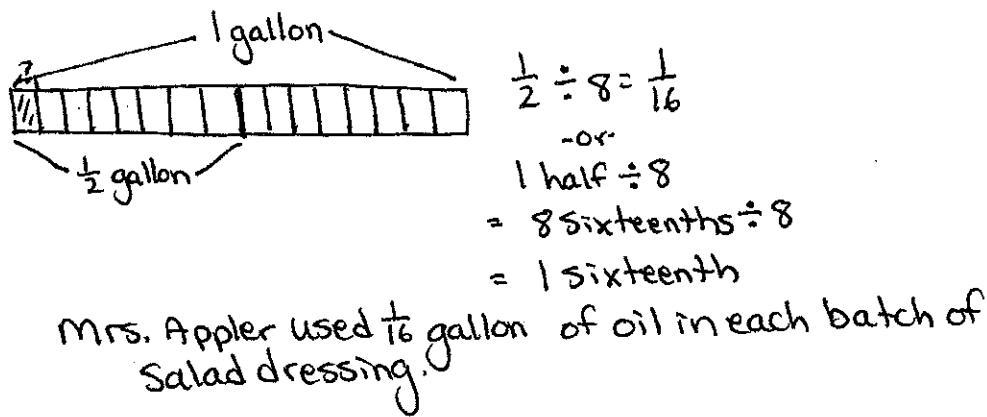 1 gallon
?
1/2 gallon
1/2 ÷ 8 = 1/16
-or-
1 half ÷ 8
= 8 sixteenths ÷ 8
= 1 sixteenth
Mrs. Appler used 1/16 gallon of oil in each batch of
salad dressing.